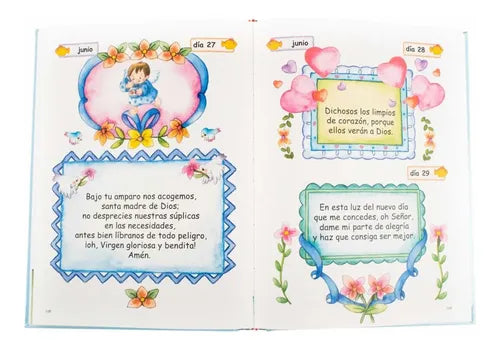 junio
día 27
Bajo tu amparo nos acogemos,
santa madre de Dios;
no desprecies nuestras súplicas
en las necesidades,
antes bien líbranos de todo peligro,
¡oh, Virgen gloriosa y bendita!
Amén.
junio
día 28
Dichosos los limpios
de corazón, porque
ellos verán a Dios.
día 29
En esta luz del nuevo día
que me concedes, oh Señor,
dame mi parte de alegría
y haz que consiga ser mejor.